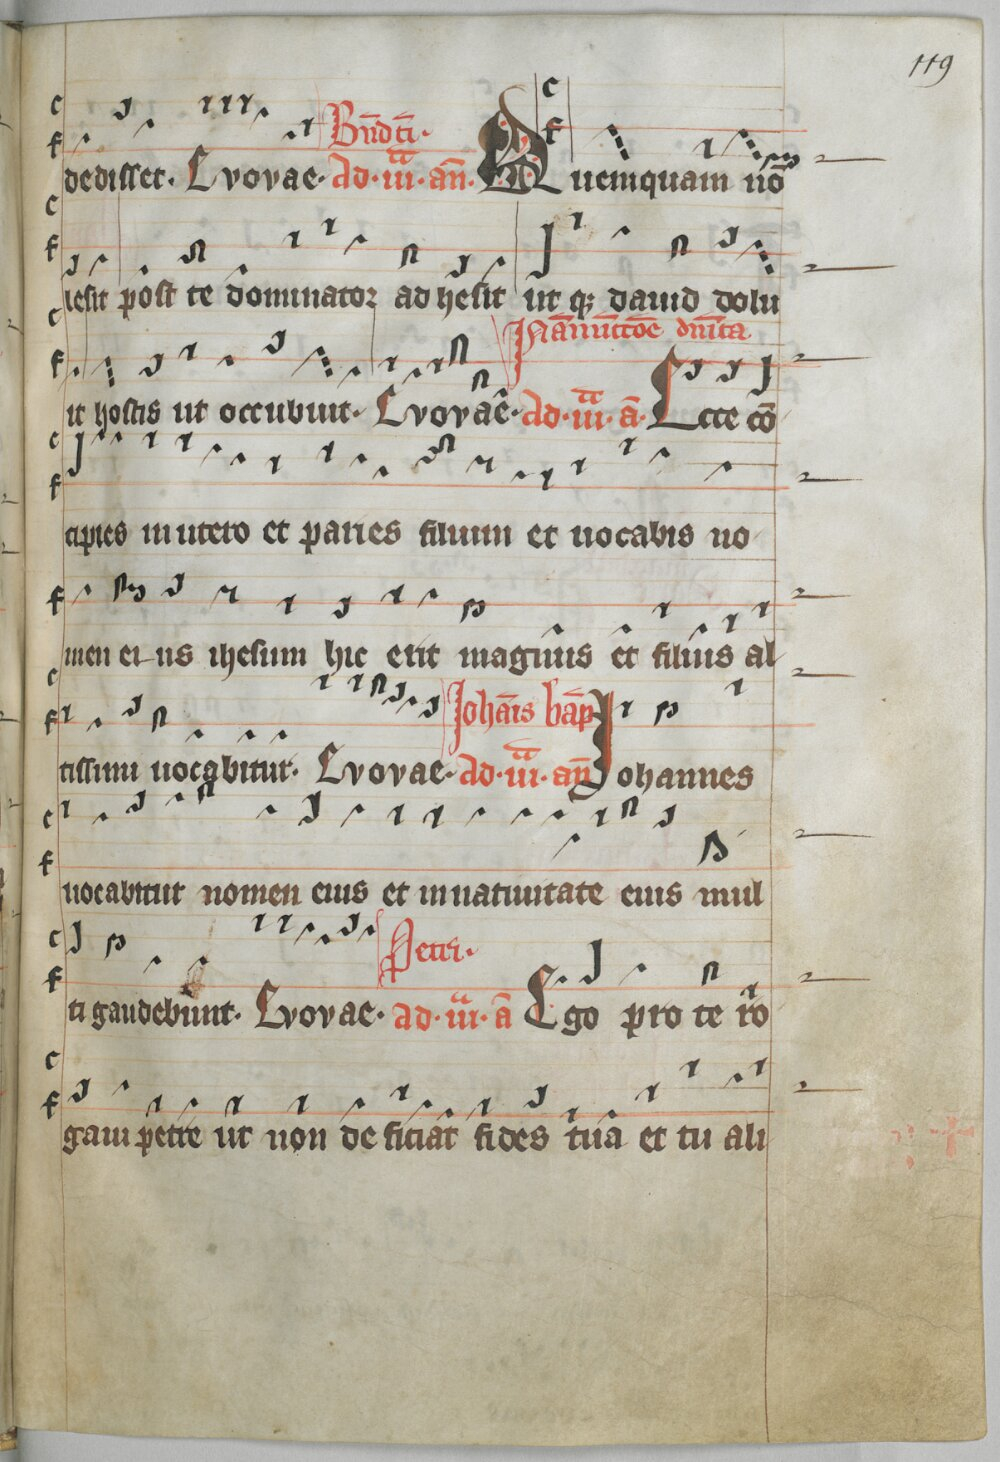 119
dedisset. Evovae. Bn̄dcī. Ad. iii. an̄. Quemquam nō
lesit post te dominator adhesit ut q; dauid dolu
In Anūtcōe dn̄ica
it hostis ut occubuit. Evovae. Ad. iii. ā. Ecce cō
cipies in utero et paries filium et uocabis no
men ei us ihesum hic erit magnus et filius al
tissimi uocabitur. Evovae. Johān̄is bāp Ad. iii. an̄ Johannes
uocabitur nomen eius et in natiuitate eius mul
ti gaudebunt. Evovae. Petri. ad. iii. ā Ego pro te ro
gaui petre ut non deficiat fides tua et tu ali